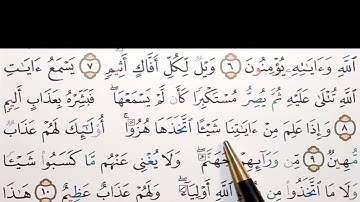 ٱللَّهِ وَءَايَٰتِهِۦ يُؤْمِنُونَ ٦ وَيْلٌ لِّكُلِّ أَفَّاكٍ أَثِيمٍ ٧ يَسْمَعُ ءَايَٰتِ
ٱللَّهِ تُتْلَىٰ عَلَيْهِ ثُمَّ يُصِرُّ مُسْتَكْبِرًا كَأَن لَّمْ يَسْمَعْهَا ۖ فَبَشِّرْهُ بِعَذَابٍ أَلِيمٍ
٨ وَإِذَا عَلِمَ مِنْ ءَايَٰتِنَا شَيْـًٔا ٱتَّخَذَهَا هُزُوًا ۚ أُو۟لَٰٓئِكَ لَهُمْ عَذَابٌ
مُّهِينٌ ٩ مِّن وَرَآئِهِمْ جَهَنَّمُ ۖ وَلَا يُغْنِى عَنْهُم مَّا كَسَبُوا۟ شَيْـًٔا
وَلَا مَا ٱتَّخَذُوا۟ مِن دُونِ ٱللَّهِ أَوْلِيَآءَ ۖ وَلَهُمْ عَذَابٌ عَظِيمٌ ١٠ هَٰذَا